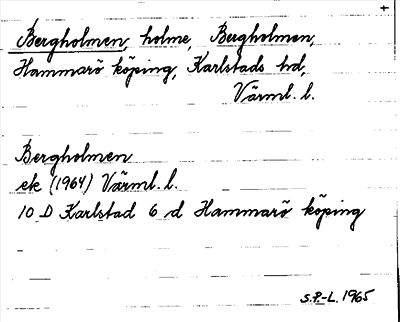 +
Bergholmen, holme, Bergholmen,
Hammarö köping, Karlstads hd,
Värml. l.
Bergholmen
ek (1964) Värml. l.
10 D Karlstad 6 d Hammarö köping
S.P.-L. 1965